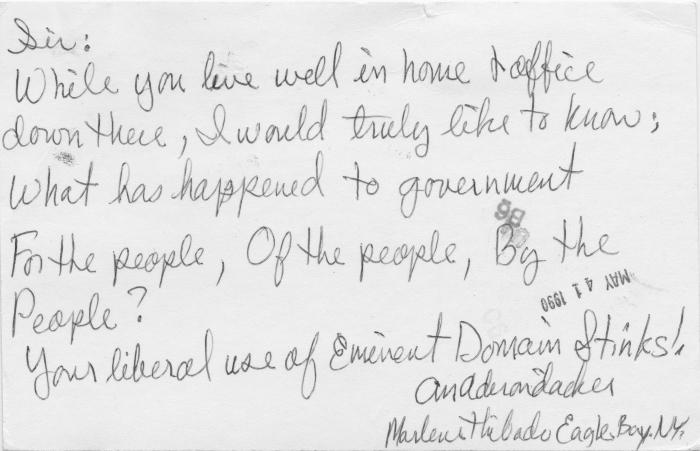 Sir:
While you live well in home & office
down there, I would truly like to know;
What has happened to government
For the people, Of the people, By the
People?
Your liberal use of Eminent Domain Stinks!
an Aderondacker
Marlene Eagle Bay. NY.
86
MAY 14 1990